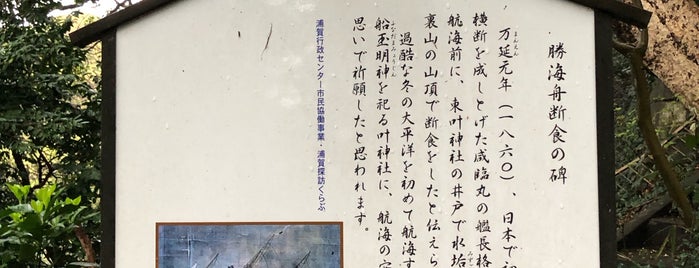 勝海舟断食の碑
万延元年（一八六〇）、日本で
まんえん
横断を成しとげた咸臨丸の艦長格
航海前に、東叶神社の井戸で水垢
みず
裏山の山頂で断食をしたと伝えら
過酷な冬の太平洋を初めて航海す
船玉明神を祀る叶神社に、航海の
ふなだまみょうじん
思いで祈願したと思われます。
浦賀行政センター市民協働事業・浦賀探訪くらぶ